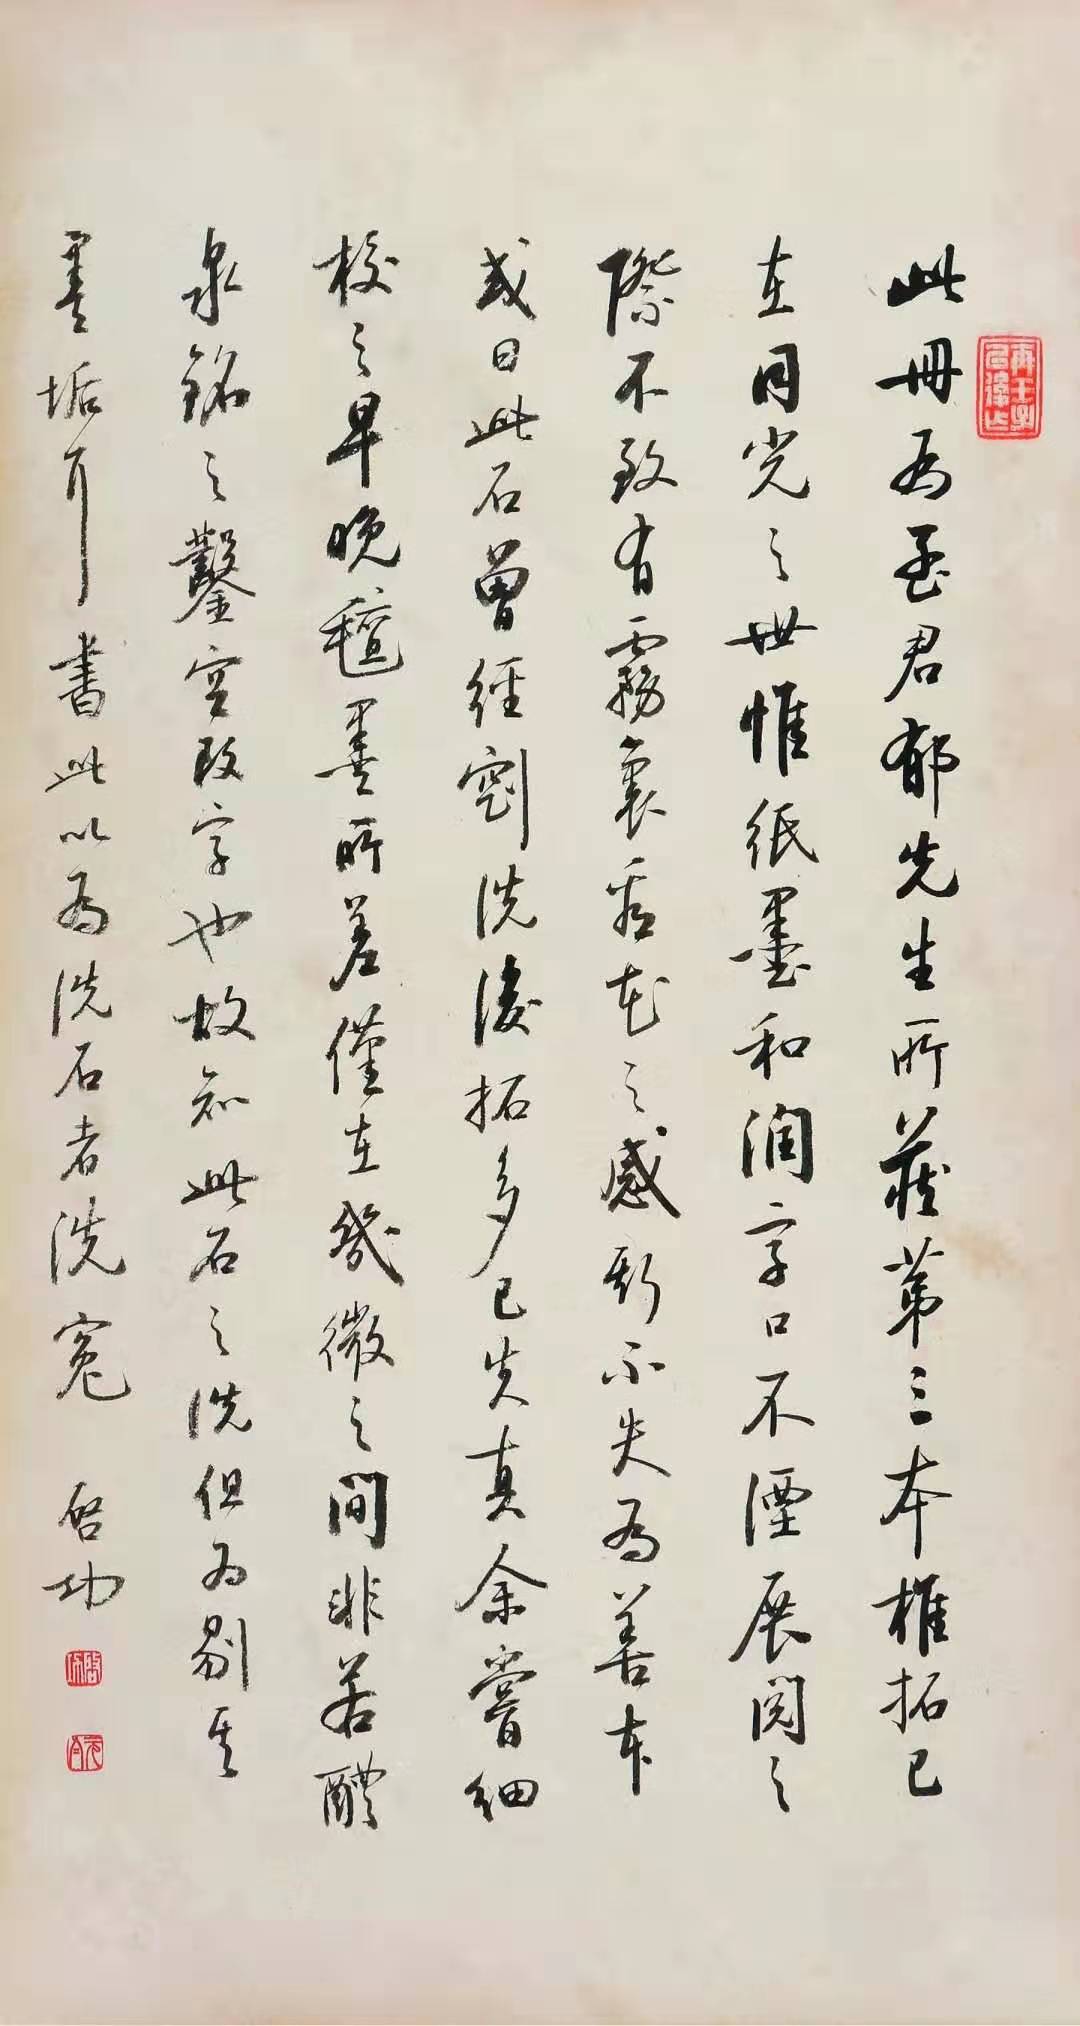 此冊为至君郁先生所藏第三本椎拓已
在同光之世惟紙墨和润字口不湮展閲之
際不致有霧裏看花之感斯不失为善本
或曰此石曾經剜洗後拓多已失真余嘗細
校之早晚氊墨所差僅在幾微之間非若醴
泉銘之鑿空改字也故知此石之洗但为剔其
墨垢耳書此以为洗石者洗冤 啓功